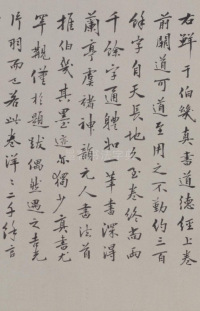 右鮮于伯幾真書道德經上卷
前闕道可道至用之不勤約三百
餘字自天長地久至卷終尚兩
千餘字通體和筆書深得
蘭亭虞褚神韻元人書法首
推伯幾其墨迹亦獨少真書尤
罕觀僅於題跋偶然遇之吉光
片羽而已若此卷洋洋二千餘言